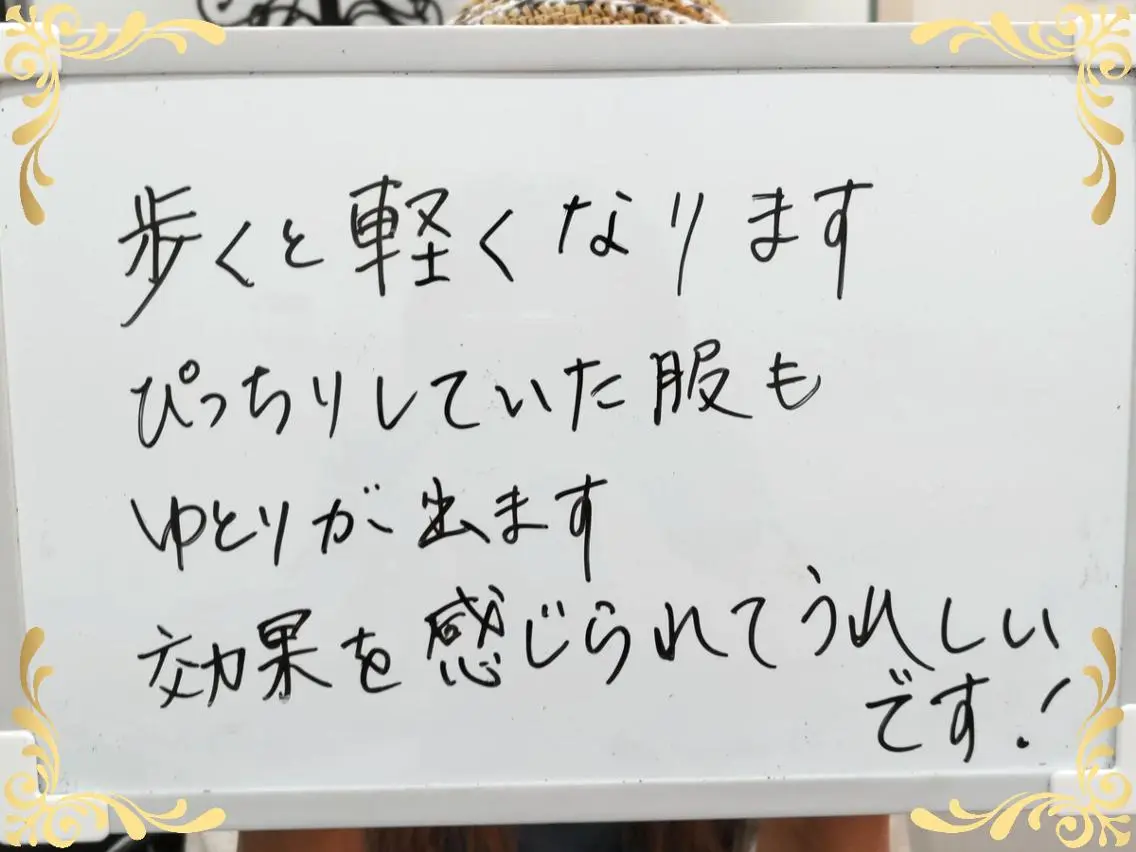 歩くと軽くなります
ぴっちりしていた服も
ゆとりが出ます
効果を感じられてうれしい
です!